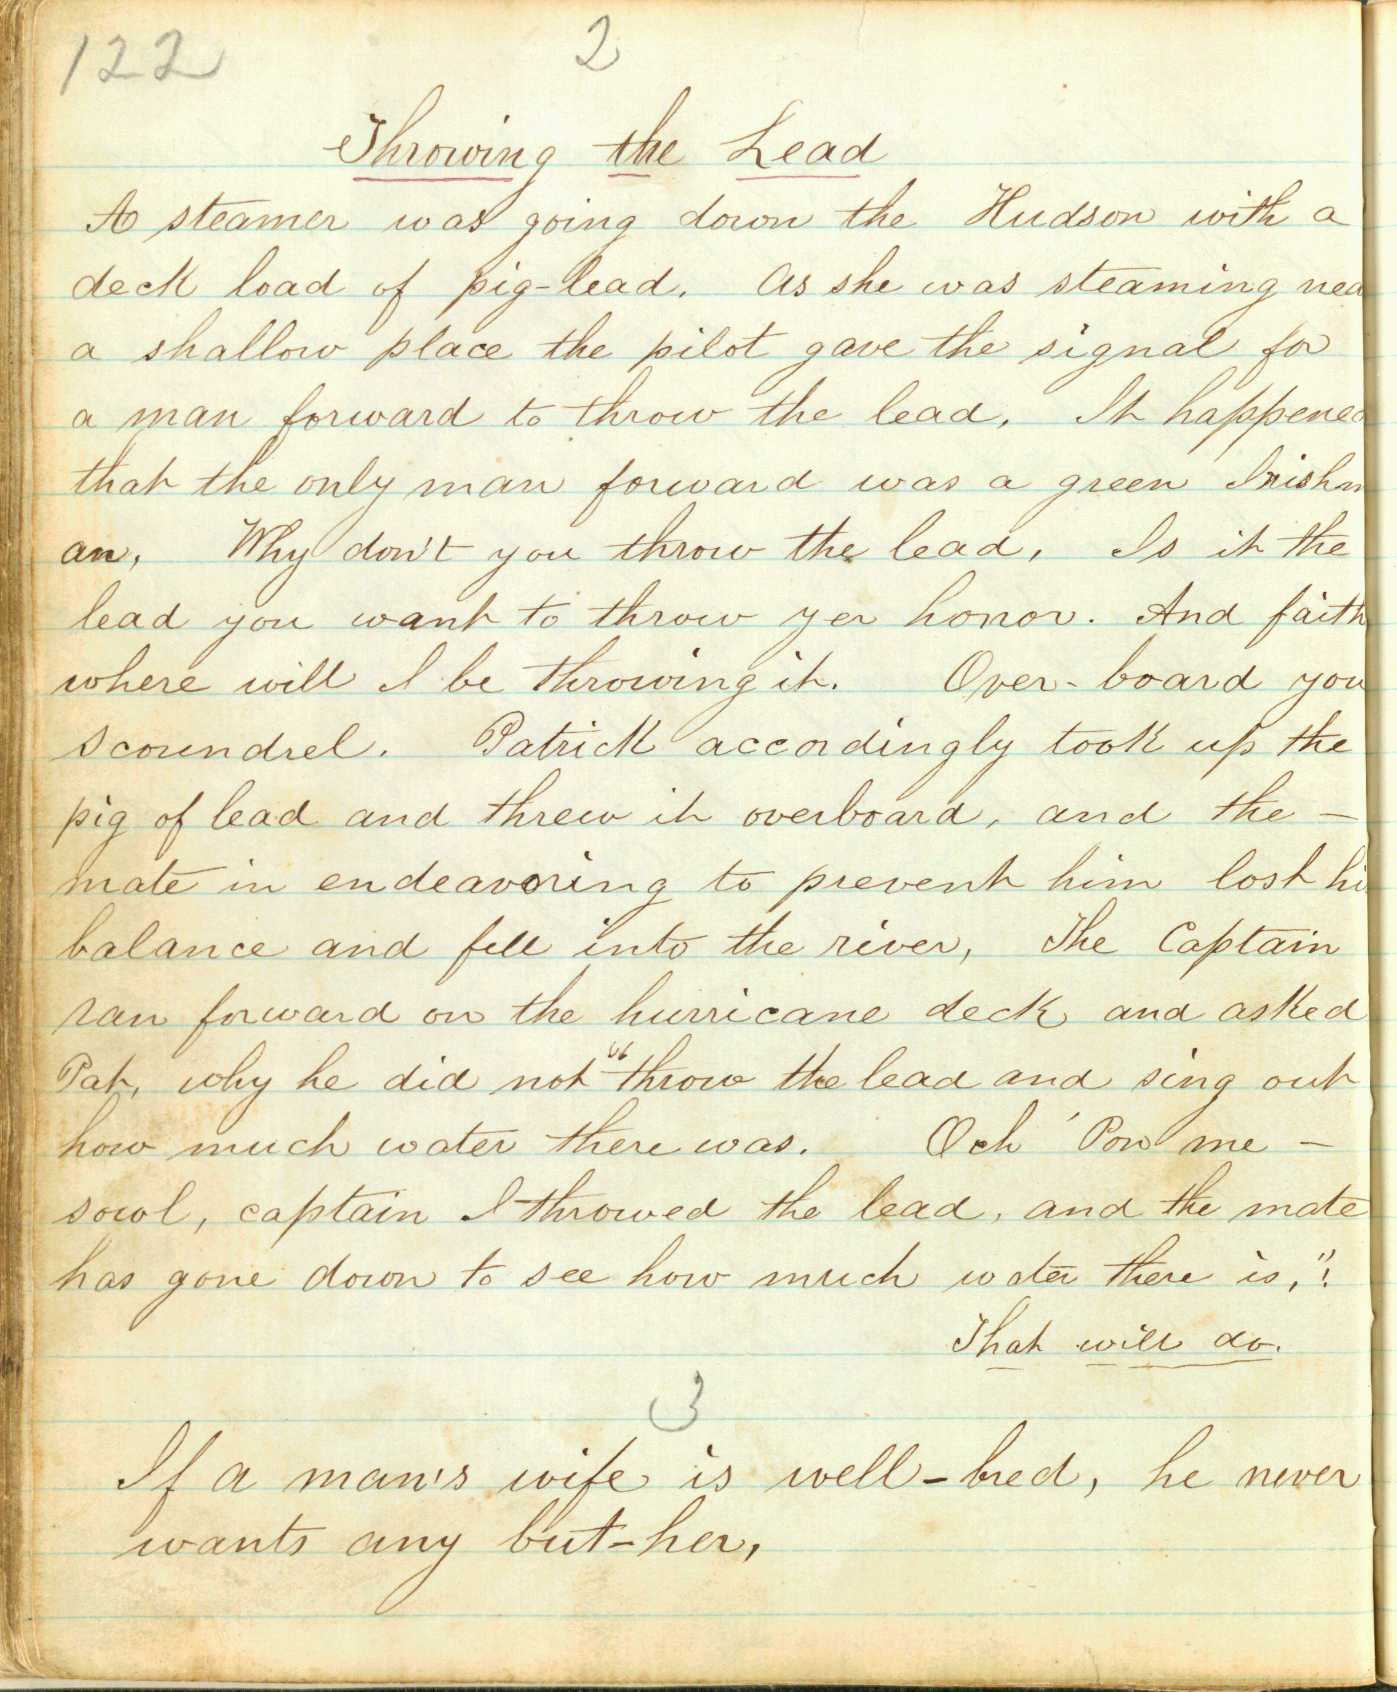 122
2
Throwing the Lead
A steamer was going down the Hudson with a
deck load of pig-lead. As she was steaming nea
a shallow place the pilot gave the signal for
a man forward to throw the lead. It happened
that the only man forward was a green Irishm
an. Why don't you throw the lead. Is it the
lead you want to throw yer honor. And faith
where will I be throwing it. Over-board you
scoundrel. Patrick accordingly took up the
pig of lead and threw it overboard, and the -
mate in endeavoring to prevent him lost hi
balance and fell into the river, The Captain
ran forward on the hurricane deck and asked
Pat, why he did not "throw the lead and sing out
how much water there was. Och ' Pon me -
sowl, captain I throwed the lead, and the mate
has gone down to see how much water there is,"!
That will do.
3
If a man's wife is well-bred, he never
wants any but-her,